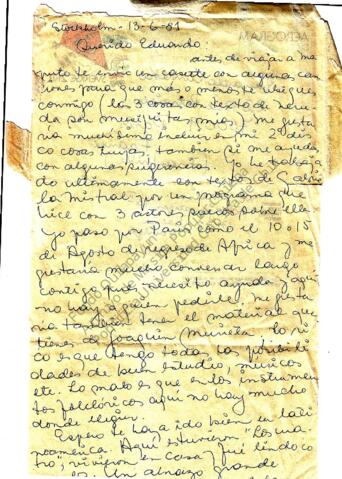 Stockholm - 13-6-81
Querido Eduardo:
antes de viajar a Ma
puto te envio un casete con algunas can
ciones para que más o menos te ubiques
conmigo (las 3 cosas con texto de Neru
da son musiquitas mías) me gusta
ría muchísimo incluir en mi 2° dis
co cosas tuyas, también si me ayudas
con algunas sugerencias. Yo he trabaja
do últimamente con textos de Gabrie
la Mistral por un programa que
hice con 3 actores suecos sobre ella
Yo paso por París como el 10 o 15
de Agosto de regreso de Africa y me
gustaría mucho conversar largo
contigo pues necesito ayuda y aquí
no hay a quien pedirle. Me gusta
ría también tener el material que
tienes de Joaquín Murieta. Lo ri
co es que tengo todas las posibili
dades de buen estudio, músicos
etc. Lo malo es que en los instrumen
tos folclóricos aquí no hay mucho
donde elegir.
Espero te haya ido bien en Lati
noamérica. Aquí estuvieron "Los Ja
", vivieron en casa, qué lindo co
Un abrazo grande